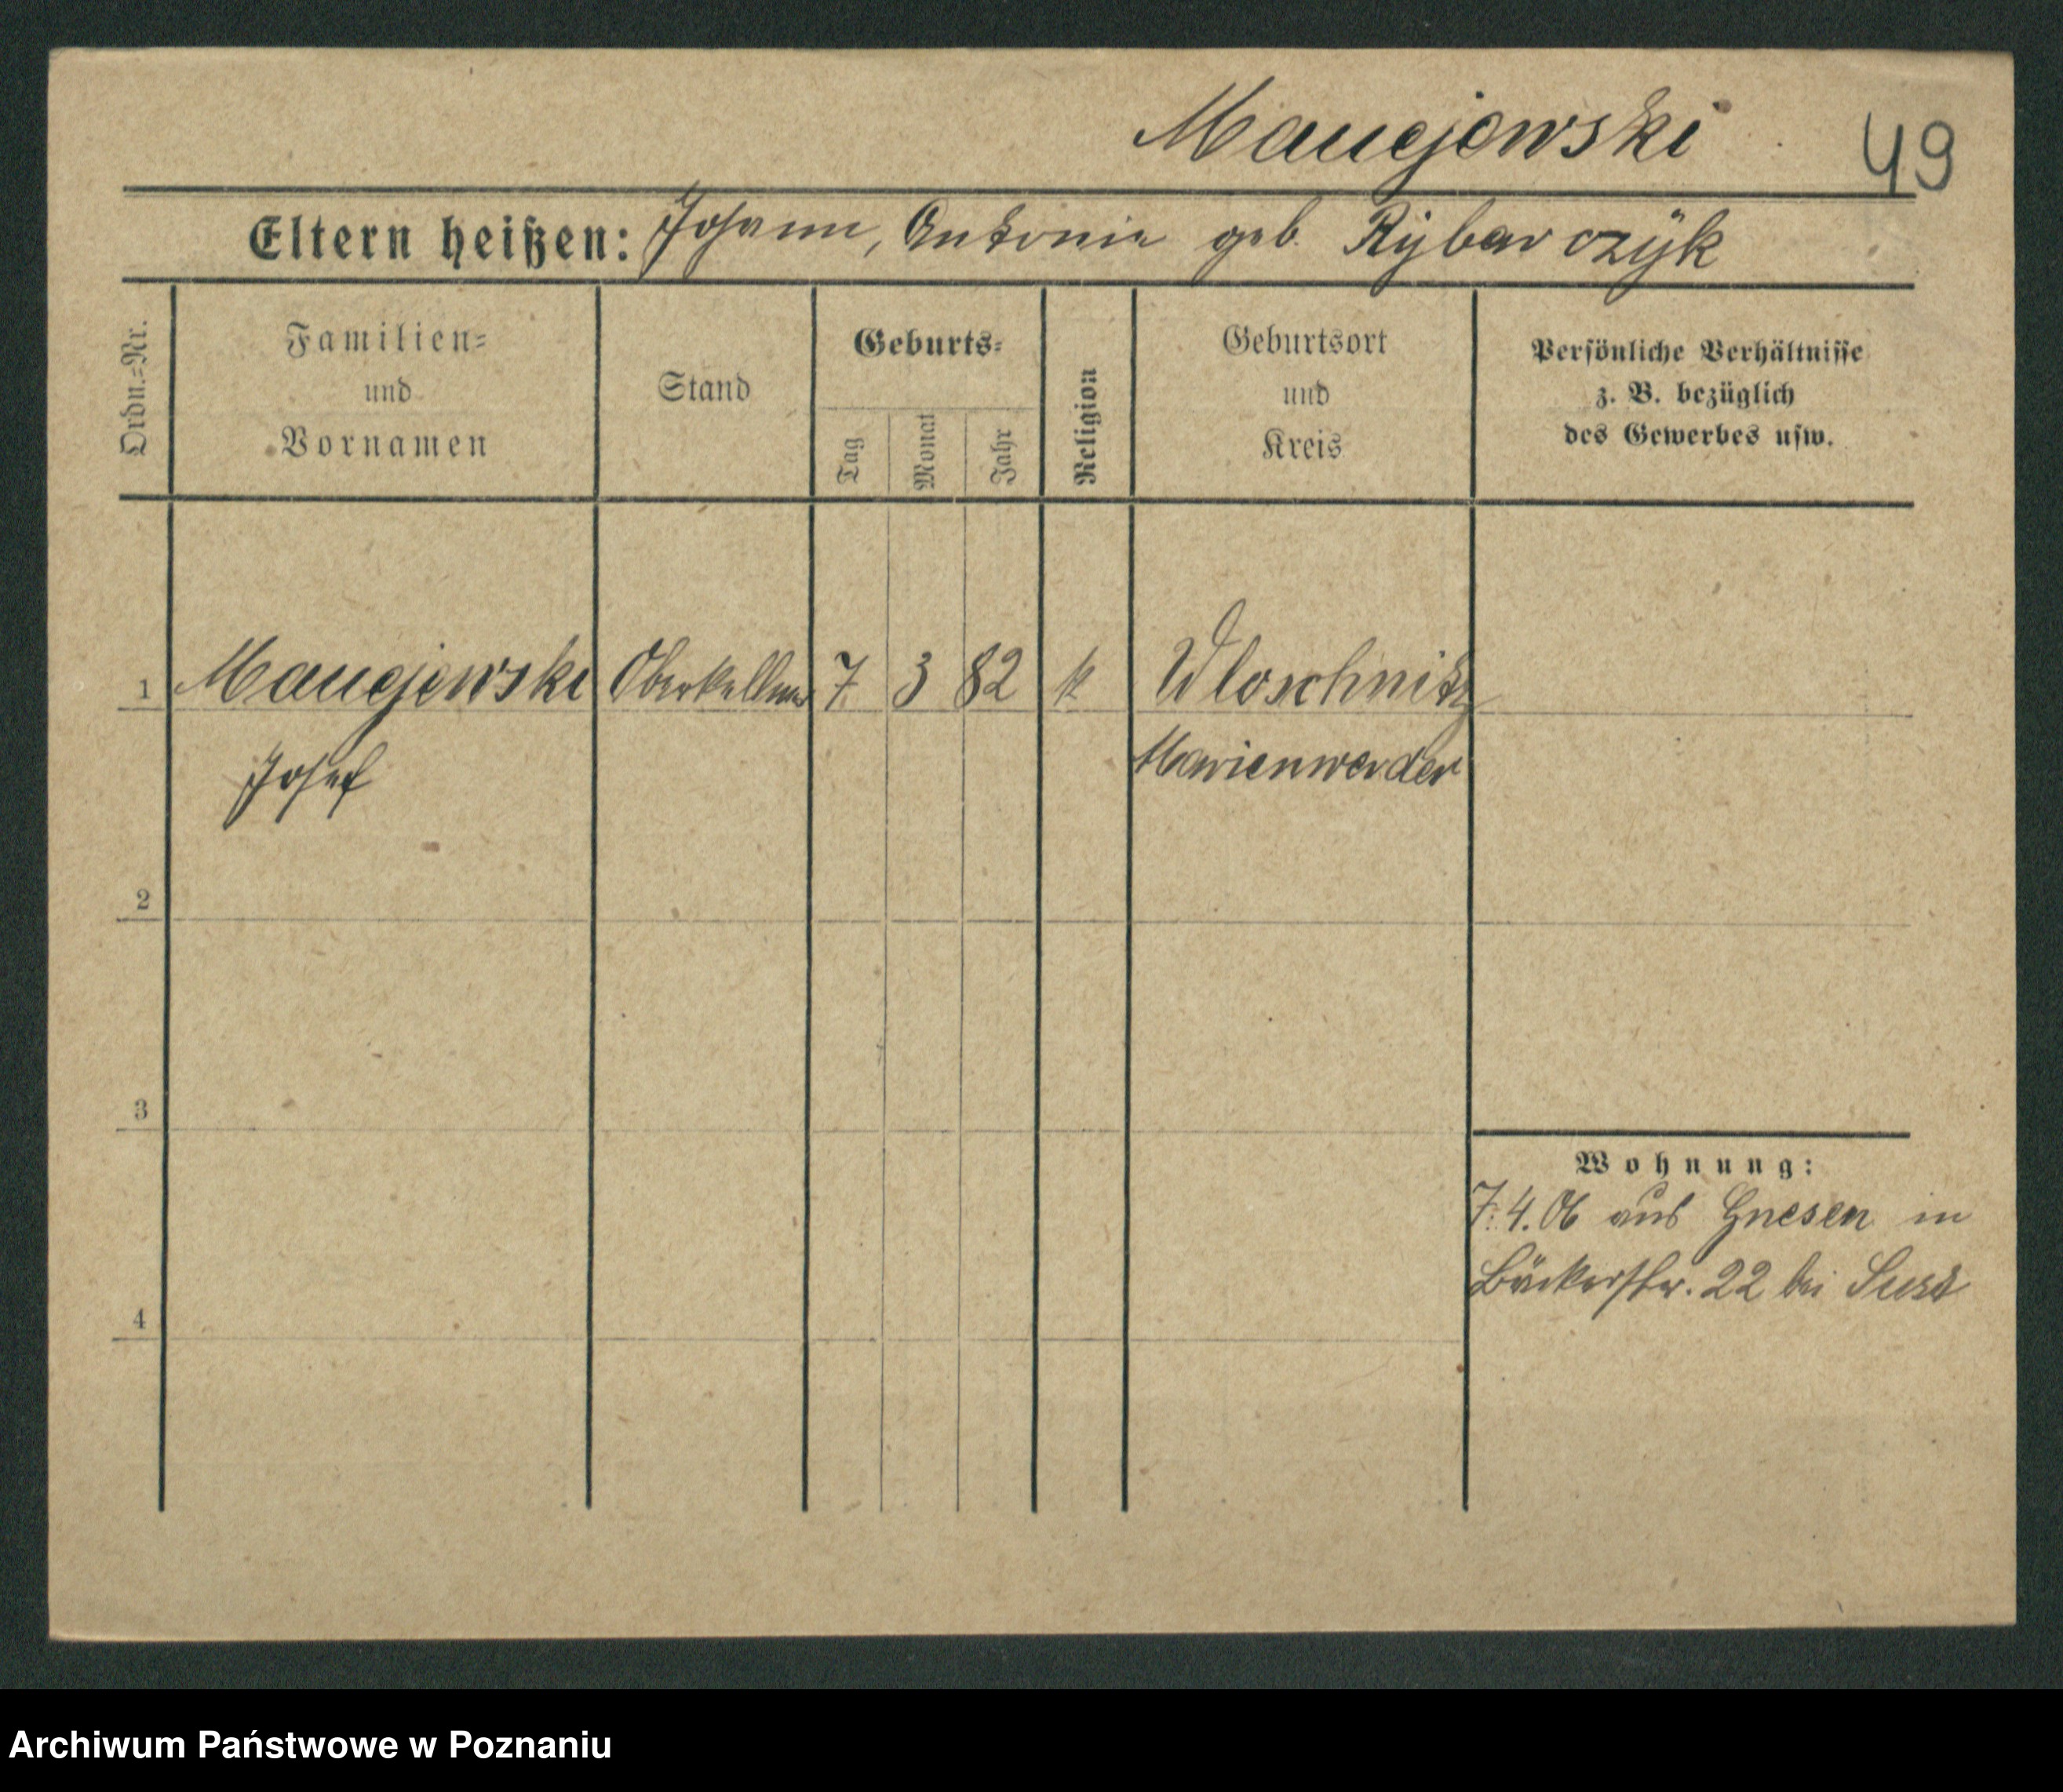 Mauejewski
49
Eltern heißen: Johann, Antonie geb. Rÿbarczÿk
Ordn.=Nr.
Familien=
und
Vornamen
Stand
Geburts=
Tag
Monat
Jahr
Religion
Geburtsort
und
Kreis
Persönliche Verhältnisse
z. B. bezüglich
des Gewerbes usw.
1 Mauejewski Oberkellner 7 3 82 k Wloschnitz
Josef Marienwerder
2
3
Wohnung:
7.4.06 aus Gnesen in
Bäckerstr. 22 bei
4
Archiwum Państwowe w Poznaniu